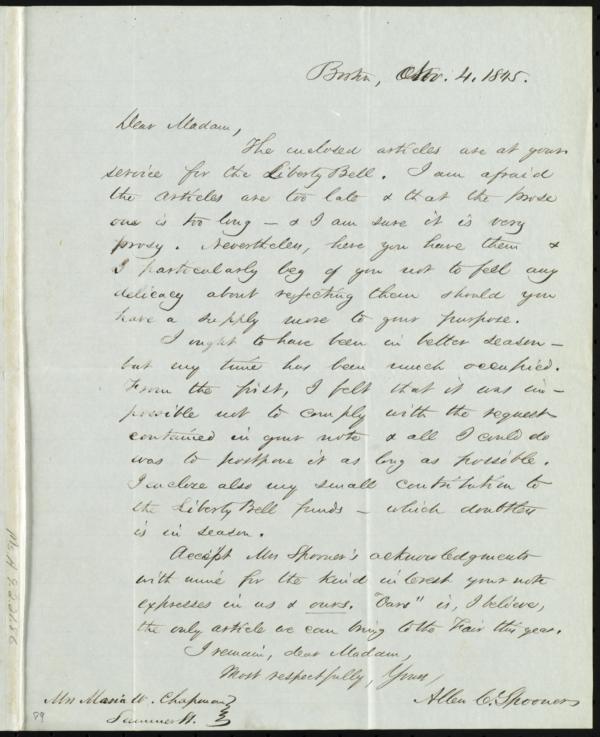 Boston, Nov. 4. 1845.
Dear Madam,
The enclosed articles are at your
service for the Liberty Bell. I am afraid
the articles are too late & that the prose
one is too long — & I am sure it is very
prosy. Nevertheless, here you have them &
I particularly beg of you not to feel any
delicacy about rejecting them should you
have a supply more to your purpose.
I ought to have been in better season —
but my time has been much occupied.
From the first, I felt that it was im-
possible not to comply with the request
contained in your note & all I could do
was to postpone it as long as possible.
I inclose also my small contribution to
the Liberty Bell funds — which doubtless
is in season.
Accept Mrs Spooner's acknowledgments
with mine for the kind interest your note
expresses in us & ours. "Ours" is, I believe,
the only article we can bring to the Fair this year.
I remain, dear Madam,
Most respectfully, Yours,
Allen C. Spooner
Mrs Maria W. Chapman
Summer St.